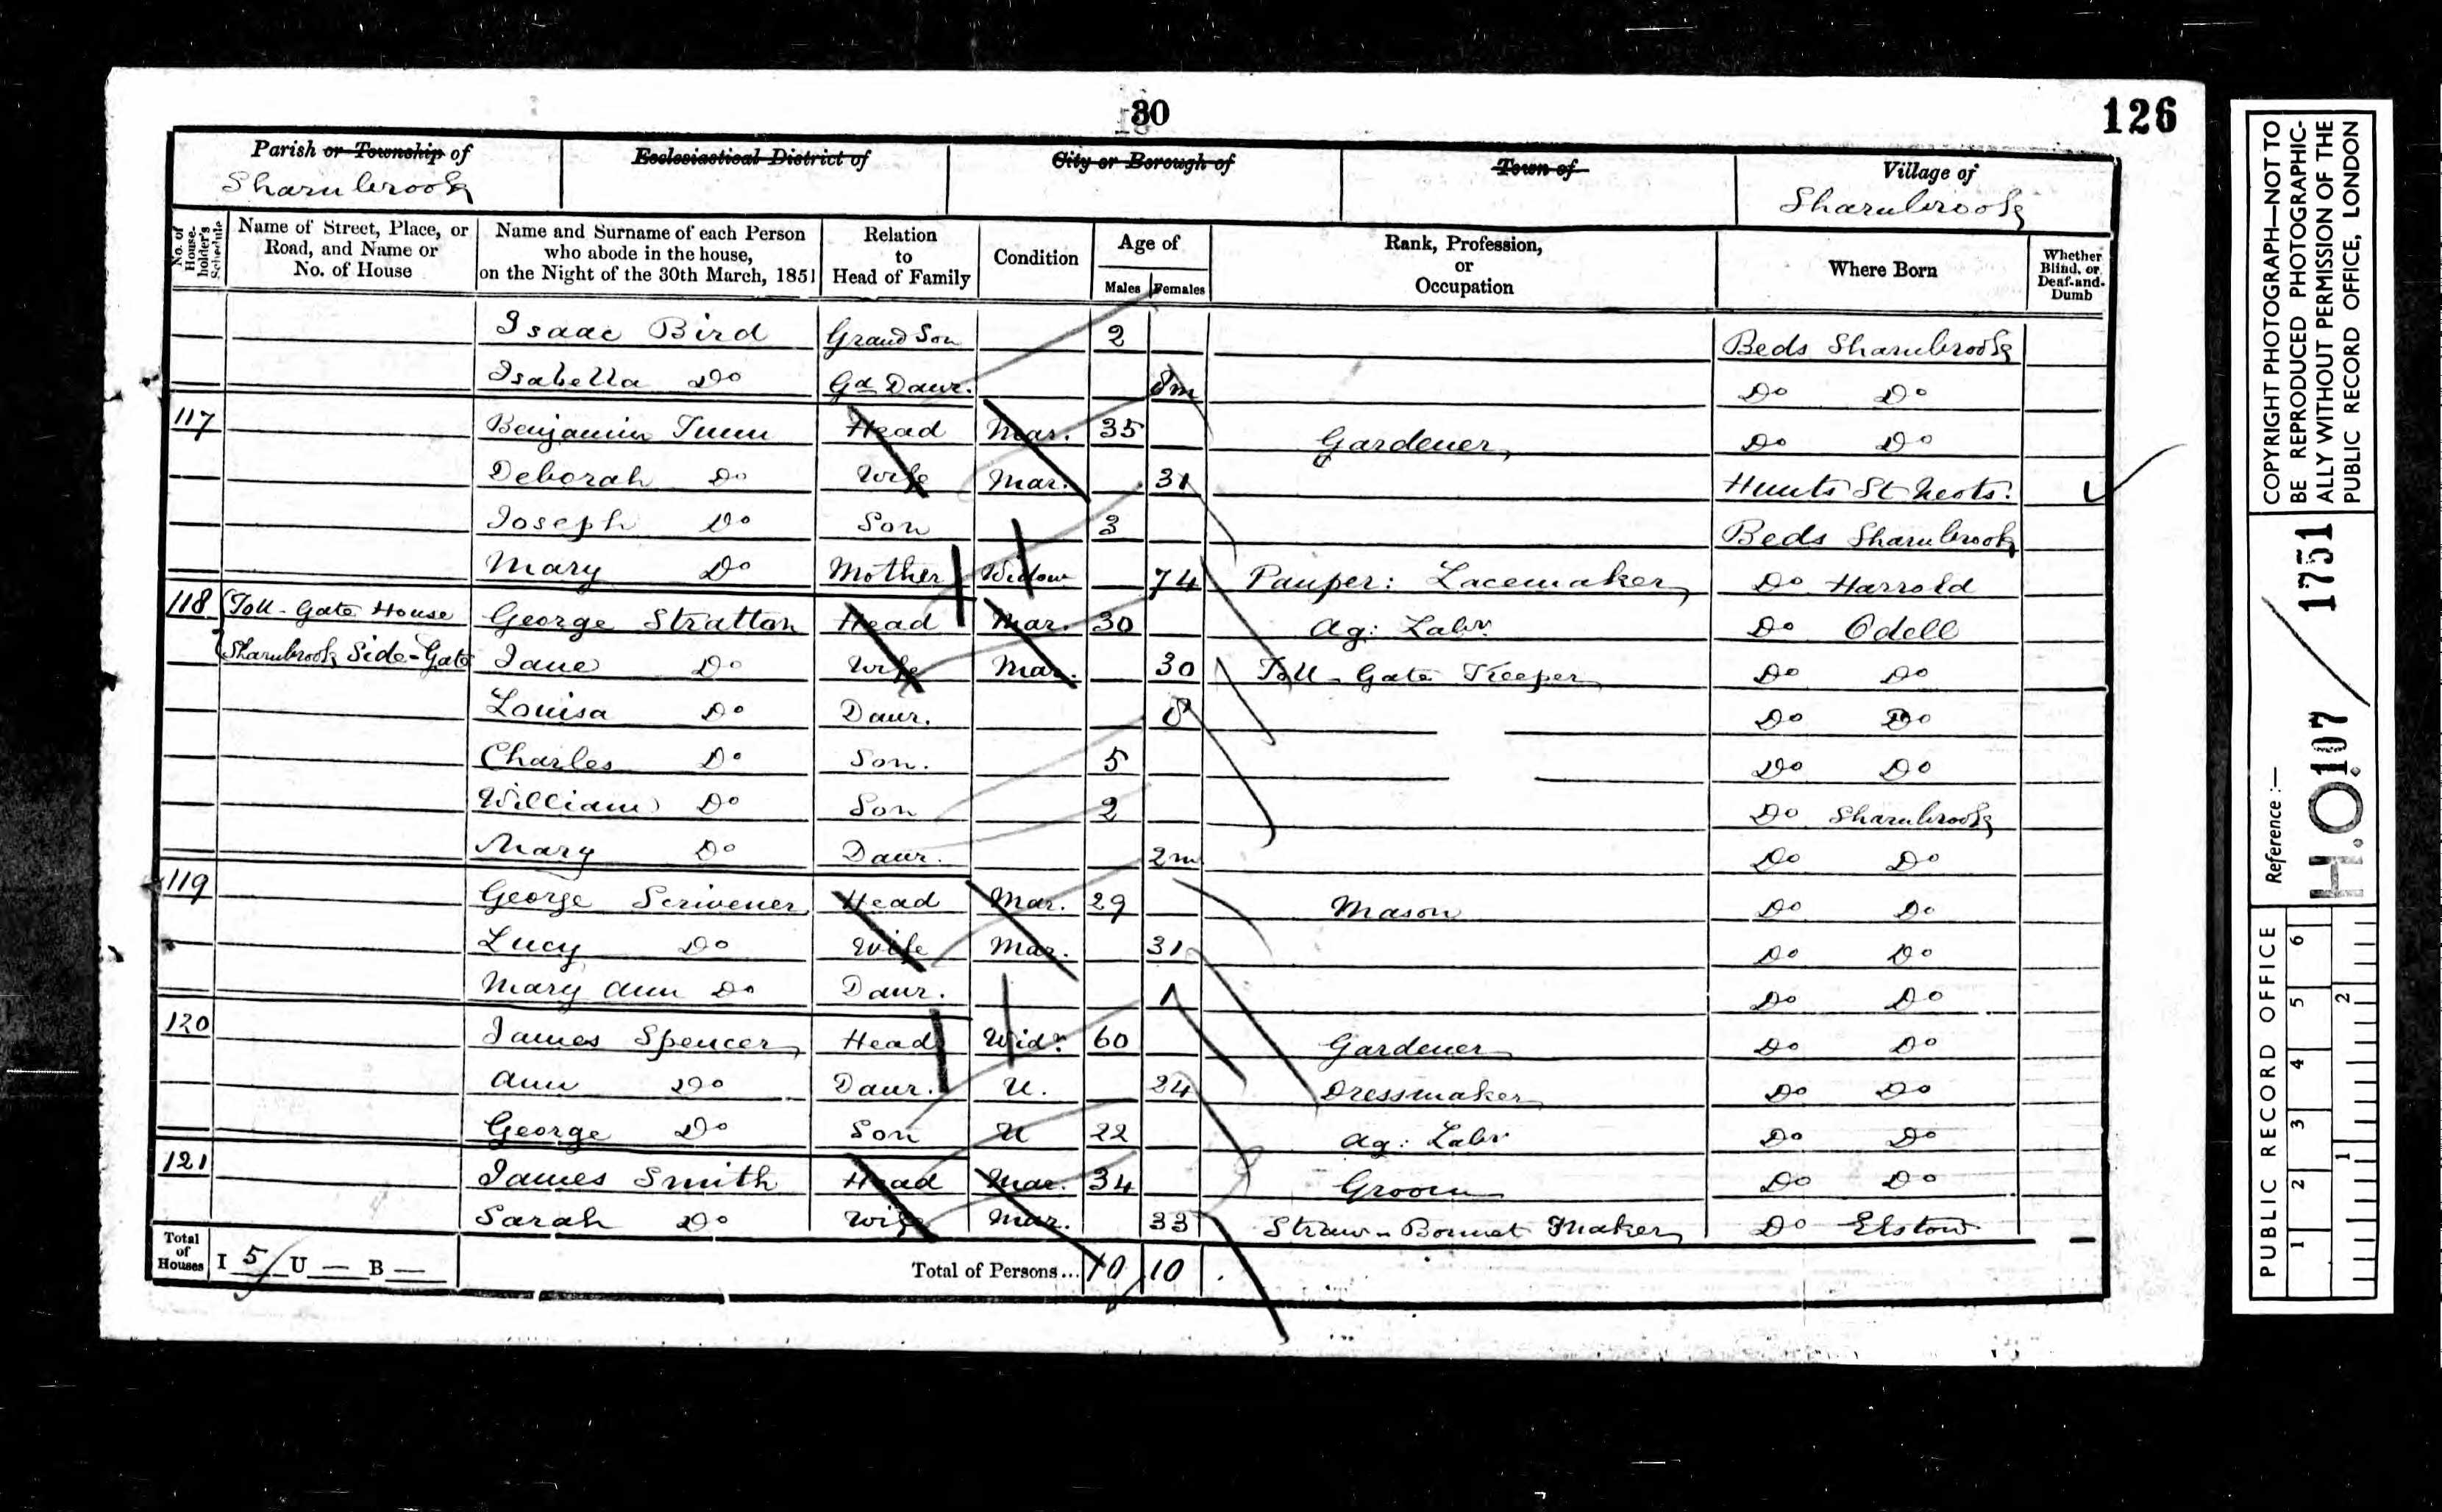 30
126
Parish or Township of
Sharnbrook
Ecclesiastical District of
City or Borough of
Town of
Village of
Sharnbrook
No. of House-holder's Schedule
Name of Street, Place, or Road, and Name or No. of House
Name and Surname of each Person who abode in the house, on the Night of the 30th March, 1851
Relation to Head of Family
Condition
Age of
Males Females
Rank, Profession, or Occupation
Where Born
Whether Blind, or Deaf-and-Dumb
Isaac Bird Grand Son 2 Beds Sharnbrook
Isabella Do Gd Daur. 8m Do Do
117 Benjamin Tunn Head Mar. 35 Gardener Do Do
Deborah Do Wife Mar. 31 Hunts St Neots.
Joseph Do Son 3 Beds Sharnbrook
Mary Do Mother Widow 74 Pauper: Lacemaker Do Harrold
118 Toll-Gate House George Stratton Head Mar. 30 Ag: Labr Do Odell
Sharnbrook Side-Gate Jane Do Wife Mar. 30 Toll-Gate Keeper Do Do
Louisa Do Daur. 8 Do Do
Charles Do Son. 5 Do Do
William Do Son 2 Do Sharnbrook
Mary Do Daur. 2m Do Do
119 George Scrivener Head Mar. 29 Mason Do Do
Lucy Do Wife Mar. 31 Do Do
Mary Ann Do Daur. 1 Do Do
120 James Spencer Head Widr 60 Gardener Do Do
Ann Do Daur. U. 24 Dressmaker Do Do
George Do Son U 22 Ag: Labr Do Do
121 James Smith Head Mar. 34 Groom Do Do
Sarah Do Wife Mar. 33 Straw-Bonnet Maker Do Elstow
Total of Houses I 5 U — B — Total of Persons... 10 10
COPYRIGHT PHOTOGRAPH—NOT TO
BE REPRODUCED PHOTOGRAPHIC-
ALLY WITHOUT PERMISSION OF THE
PUBLIC RECORD OFFICE, LONDON
Reference:—
H.O. 107 / 1751
PUBLIC RECORD OFFICE
1 2 3 4 5 6
1 2